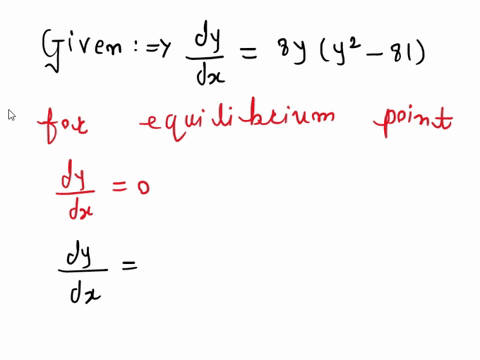 Given :⇒ dy/dx = 8y (y² - 81)
for equilibrium point
dy/dx = 0
dy/dx =